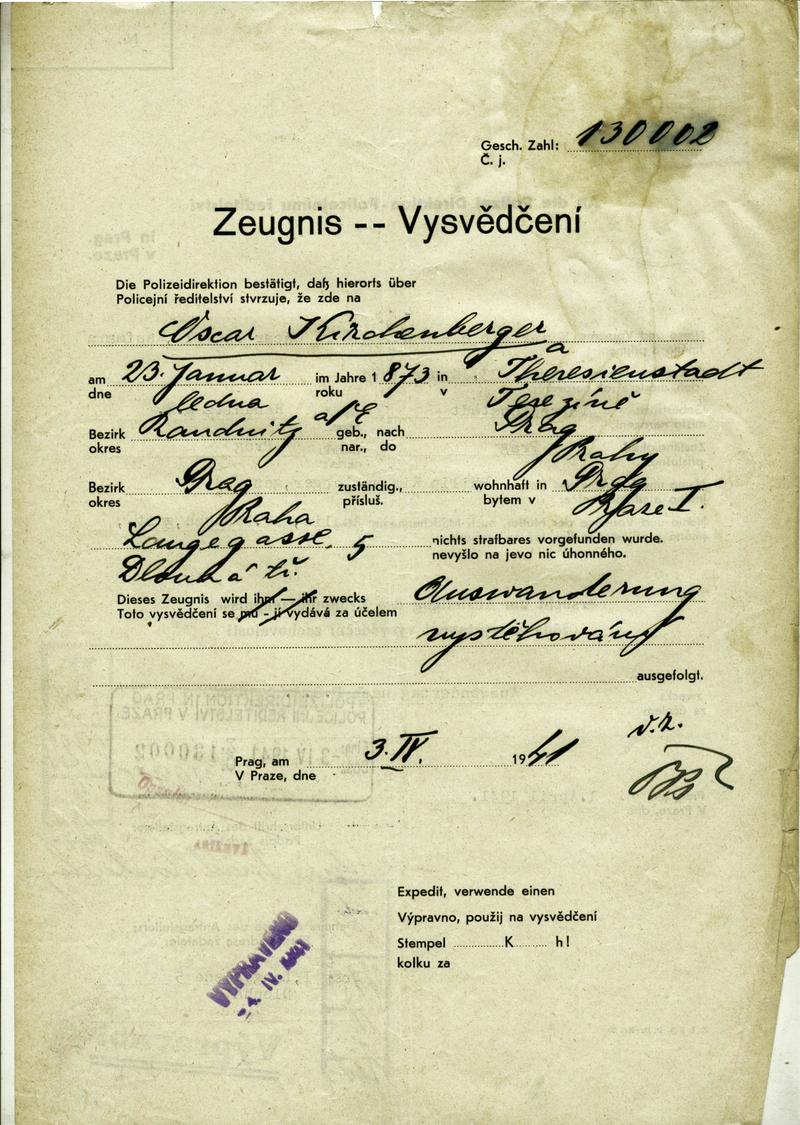 Gesch. Zahl: 130002
Č. j.
Zeugnis -- Vysvědčení
Die Polizeidirektion bestätigt, daß hierorts über
Policejní ředitelství stvrzuje, že zde na
Oscar Kirchenberger a
am 23. Januar im Jahre 1 873 in Theresienstadt
dne ledna roku v Terezíně
Bezirk Raudnitz a/E geb., nach Prag
okres nar., do Prahy
Bezirk Prag zuständig., wohnhaft in Prag
okres Praha přísluš. bytem v Praze I.
Langegasse 5 nichts strafbares vorgefunden wurde.
Dlouhá tř. nevyšlo na jevo nic úhonného.
Dieses Zeugnis wird ihm — ihr zwecks Auswanderung
Toto vysvědčení se mu - jí vydává za účelem
vystěhování
ausgefolgt.
v. z.
Prag, am 3. IV. 1941
V Praze, dne
Expedit, verwende einen
Výpravno, použij na vysvědčení
Stempel K h!
kolku za
VYPRAVENO
- 4. IV. 1941